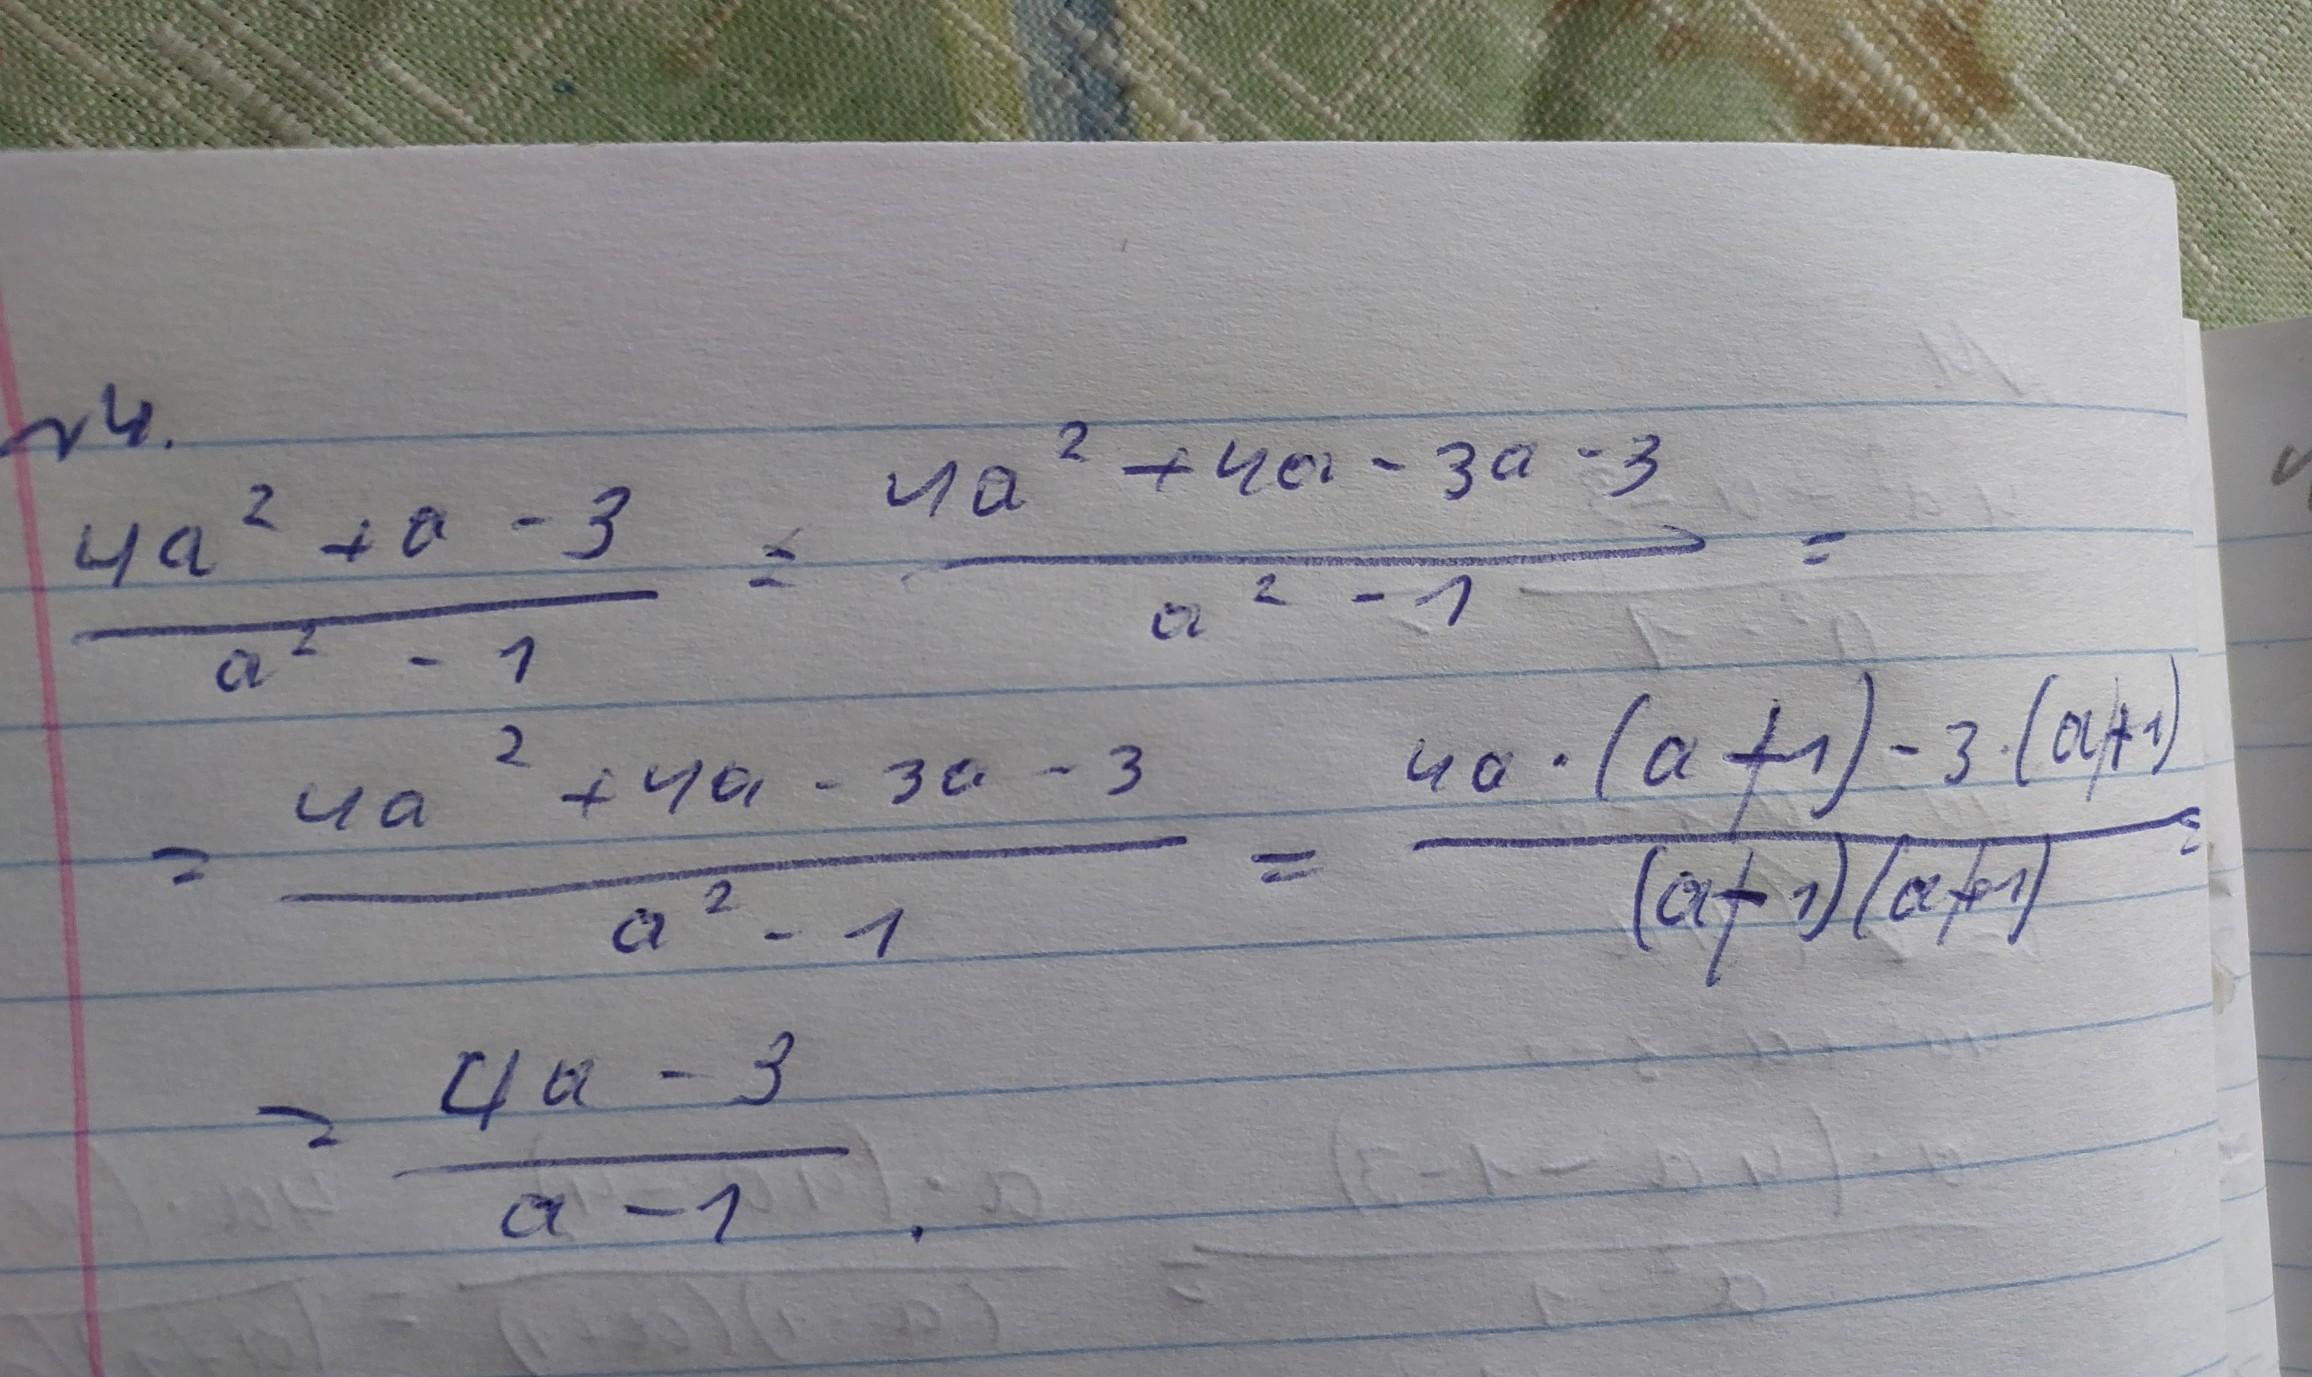 №4.
(4a² + a - 3)/(a² - 1) = (4a² + 4a - 3a - 3)/(a² - 1) =
= (4a² + 4a - 3a - 3)/(a² - 1) = (4a·(a+1) - 3·(a+1))/((a-1)(a+1)) =
= (4a - 3)/(a - 1).